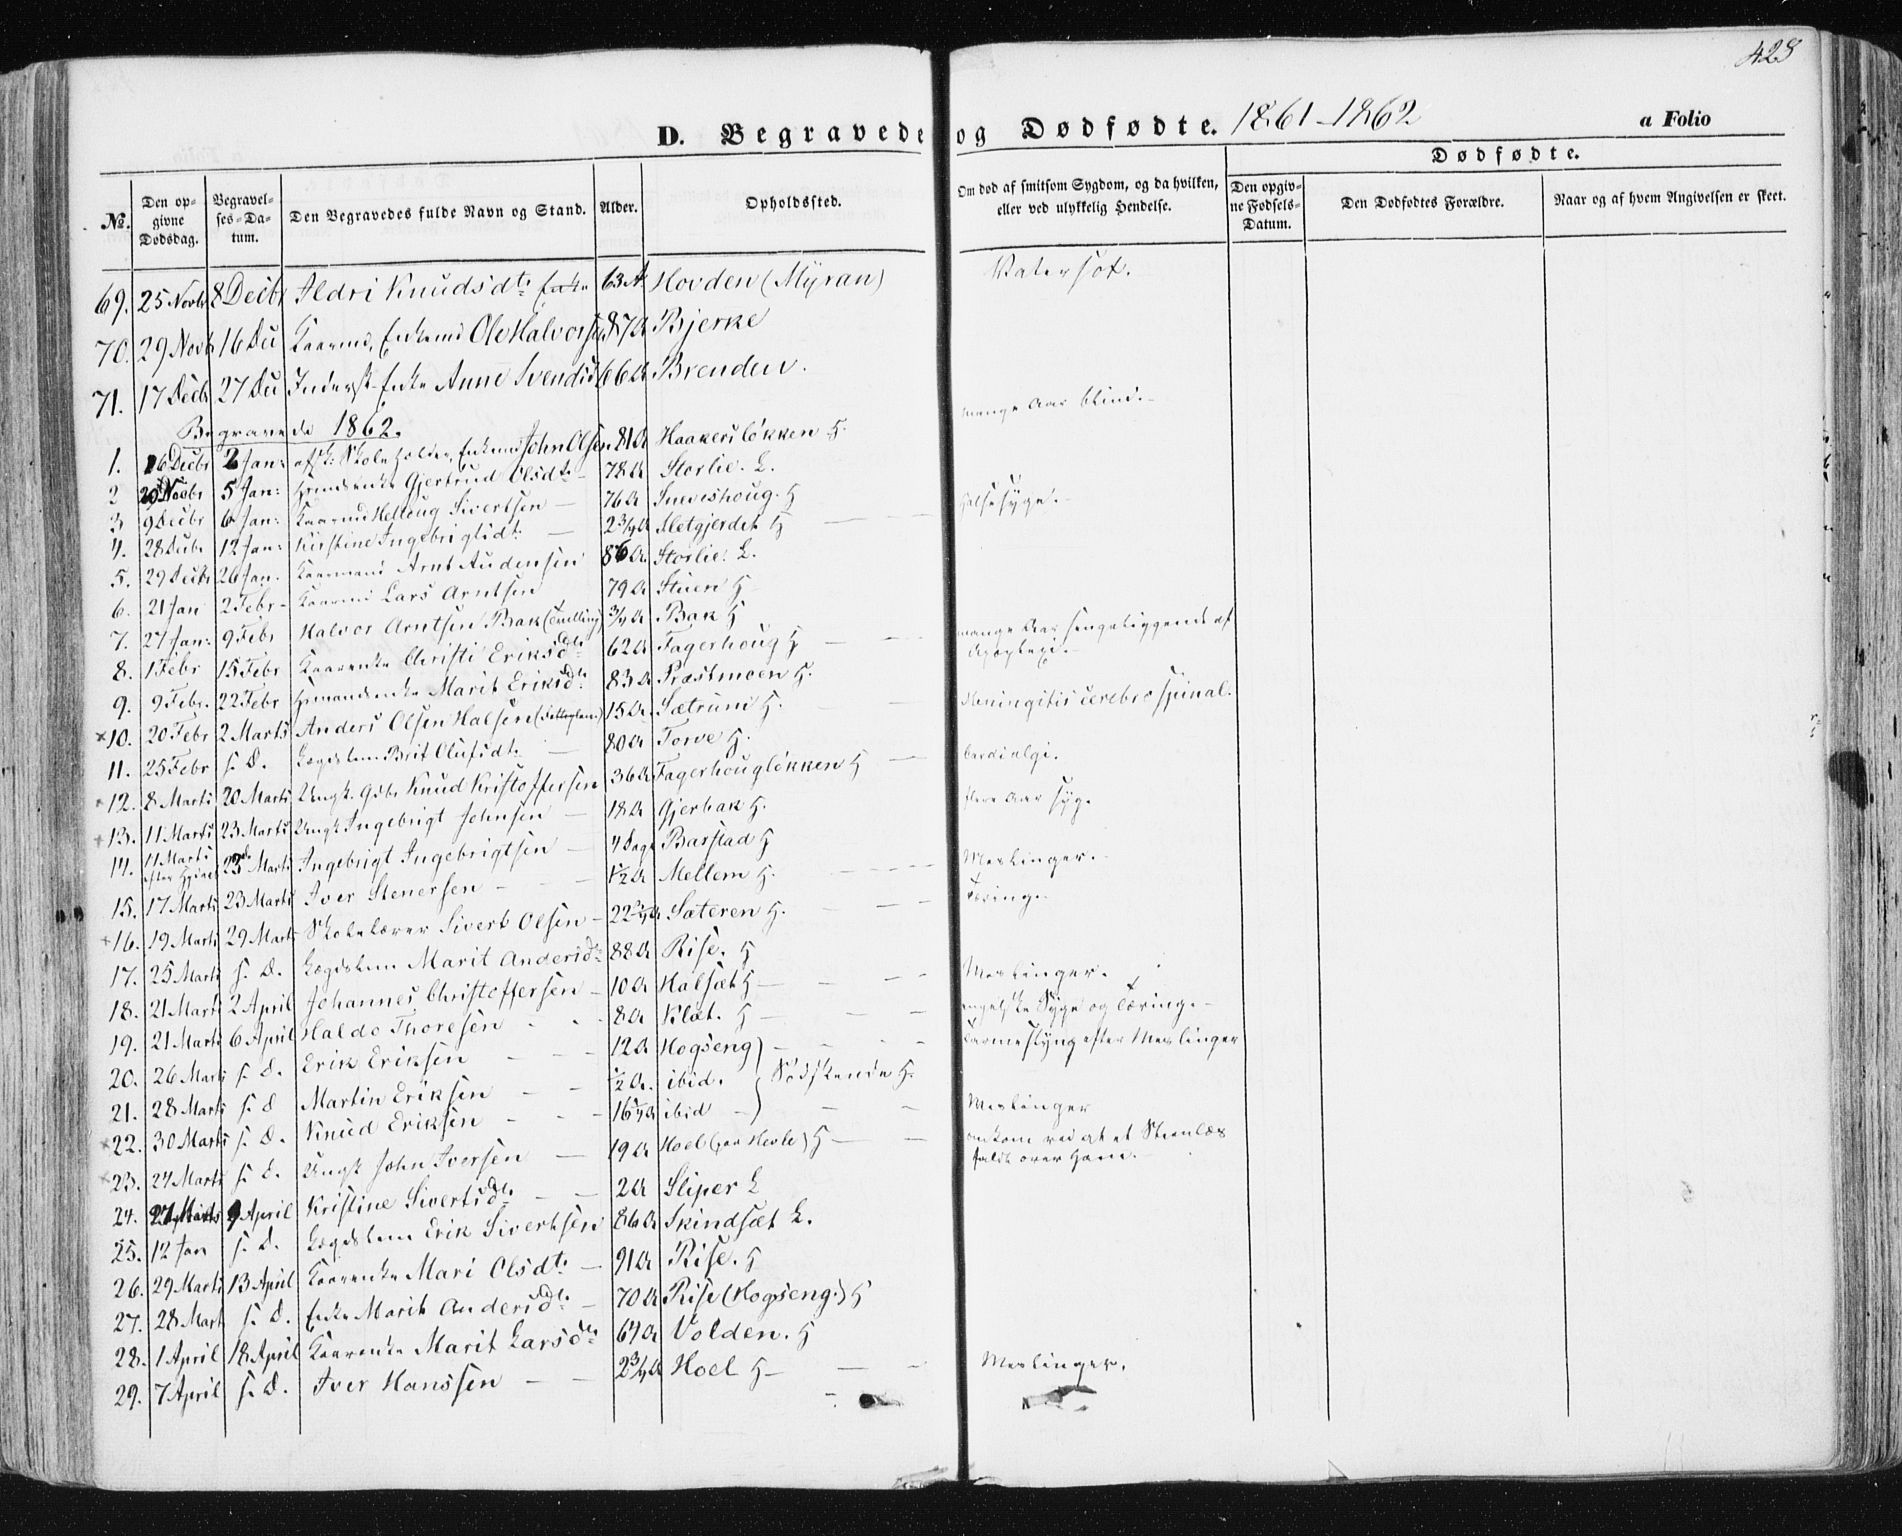 428
D. Begravede og Dødfødte. 1861-1862 a Folio
Dødfødte.
№. Den opgivne Dødsdag. Begravelses-Datum. Den Begravedes fulde Navn og Stand. Alder. Opholdssted. Om død af smitsom Sygdom, og da hvilken, eller ved ulykkelig Hendelse. Den opgivne Fødsels-Datum. Den Dødfødtes Forældre. Naar og af hvem Angivelsen er skeet.
69. 25 Novbr 8 Decbr Ildri Knudsdtr Enke 63 A Hovden (Myran) Vatersot.
70. 29 Novb 16 De Kaarmd, Enkemd Ole Halvorsen 87 A Bjerke
71. 17 Decb 27 De Inderst-Enke Anne Svendsd 66 A Brenden. mange Aar blind.
Begravede 1862.
1. 16 Decbr 2 Jan: afsk: Skoleholder, Enkemd John Olsen 81 A Haakersløkken H.
2 20 Novbr 5 Jan: Gjertrud Olsdtr 78 A Storlie. L.
3 9 Decbr 6 Jan: Kaarmd Helloug Sivertsen 76 A Sneveshoug. H Halsesyge.
4. 28 Decbr 12 Jan: Kirstine Ingebrigtsdt. 2 3/4 A Sletgjerdet H
5. 29 Decbr 26 Jan. Kaarmand Arnt Audensen 86 A. Storlie. L.
6. 21 Jan 2 Febr. Kaarmd Lars Arntsen 79 A Stuen H
7. 27 Jan: 9 Febr Halvor Arntsen Bak (Tvilling) 3/4 A Bak H
8. 1 Febr 15 Febr Kaarenke Christi Eriksdtr 62 A Fagerhoug H mange Aar sengeliggende af Apoplexi.
9. 9 Febr. 22 Febr Marit Eriksdtr 83 A Præstmoen H.
10. 20 Febr 2 Marts Anders Olsen Halsen 15 A. Sætrum H. Meningitis cerebro spinal.
11. 25 Febr s. D. Lægdslem Brit Olufsdt. 80 A Torve H.
12. 8 Marts 20 Marts Ungk. Gdbr Knud Kristoffersen 36 A Fagerhougløkken H Cardialgi.
13. 11 Marts 23 Marts Ungk Ingebrigt Johnsen 18 A Gjerbak H. flere Aar syg.
14. 11 Marts 23 Marts Ingebrigt Ingebrigtsen 4 Dage Barstad H
15. 17 Marts 23 Marts Iver Stenersen 1/2 A Mellem H. Meslinger.
16. 19 Marts 29 Marts Skolelærer Sivert Olsen 22 3/4 A Sæteren H. Tæring.
17. 25 Marts s. D. Lægdslem Marit Andersdtr 88 A Rise. H
18. 21 Marts 2 April Johannes Christoffersen 10 A Halsæt H Meslinger.
19. 21 Marts 6 April Haldo Thoresen 8 A Klæt. H engelske Syge og Tæring.
20. 26 Marts s. D. Erik Eriksen 12 A Hogseng Tarmeslyng efter Meslinger
21. 28 Marts s. d Martin Eriksen 1/2 A. ibid. Sødskende H.
22. 30 Marts s. D. Knud Eriksen 16 1/4 A ibid Meslinger
23. 24 Marts s. d. Ungk John Iversen 19 A Hoel (paa Hevle) H omkom ved at et Steenlæs faldt over ham.
24. 27 Marts 9 April Kristine Sivertsdtr 2 A Sliper L
25. 12 Jan s. D. Lægdslem Erik Sivertsen 86 A Skindsæt L.
26. 29 Marts 13 April Kaarenke Mari Olsdtr 91 A Rise. H
27. 28 Mart s. D. Enke Marit Andersdtr 70 A Rise (Hogseng.) H
28. 1 April 18 April Kaarenke Marit Larsdtr 64 A Volden. H
29. 7 April s. D. Iver Hanssen 2 3/4 A Hoel H Meslinger.